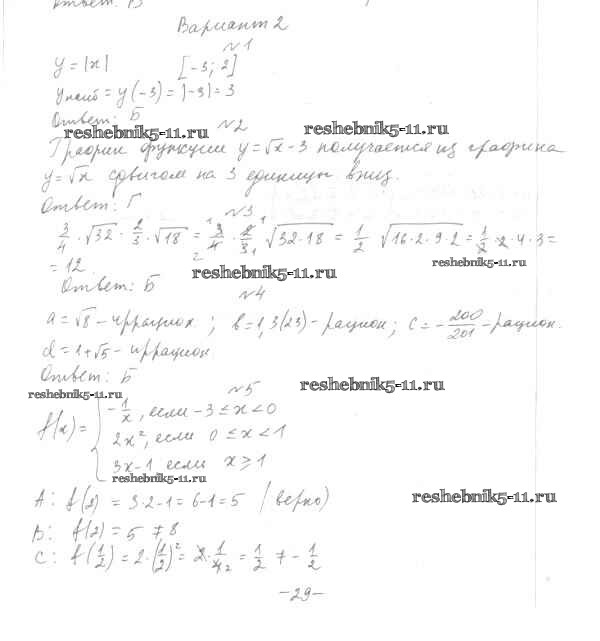 Ответ: В
Вариант 2
№1
y = |x| [-3; 2]
y наиб = y(-3) = |-3| = 3
Ответ: Б
reshebnik5-11.ru
№2
reshebnik5-11.ru
График функции y = √x - 3 получается из графика
y = √x сдвигом на 3 единицы вниз.
Ответ: Г
№3
3/4 · √32 · 2/3 · √18 = 3/4 · 2/3 √(32·18) = 1/2 √(16·2·9·2) = 1/2 · 2 · 4 · 3 =
= 12.
reshebnik5-11.ru
reshebnik5-11.ru
Ответ: Б
№4
a = √8 - иррацион; b = 1,3(23) - рацион; c = - 200/201 - рацион.
d = 1 + √5 - иррацион
Ответ: Б
reshebnik5-11.ru
reshebnik5-11.ru
№5
-1/x, если -3 ≤ x < 0
f(x) = 2x², если 0 ≤ x < 1
3x-1 если x ≥ 1
reshebnik5-11.ru
A: f(2) = 3·2-1 = 6-1 = 5 (верно)
reshebnik5-11.ru
B: f(2) = 5 ≠ 8
C: f(1/2) = 2·(1/2)² = 2·1/4 = 1/2 ≠ - 1/2
-29-